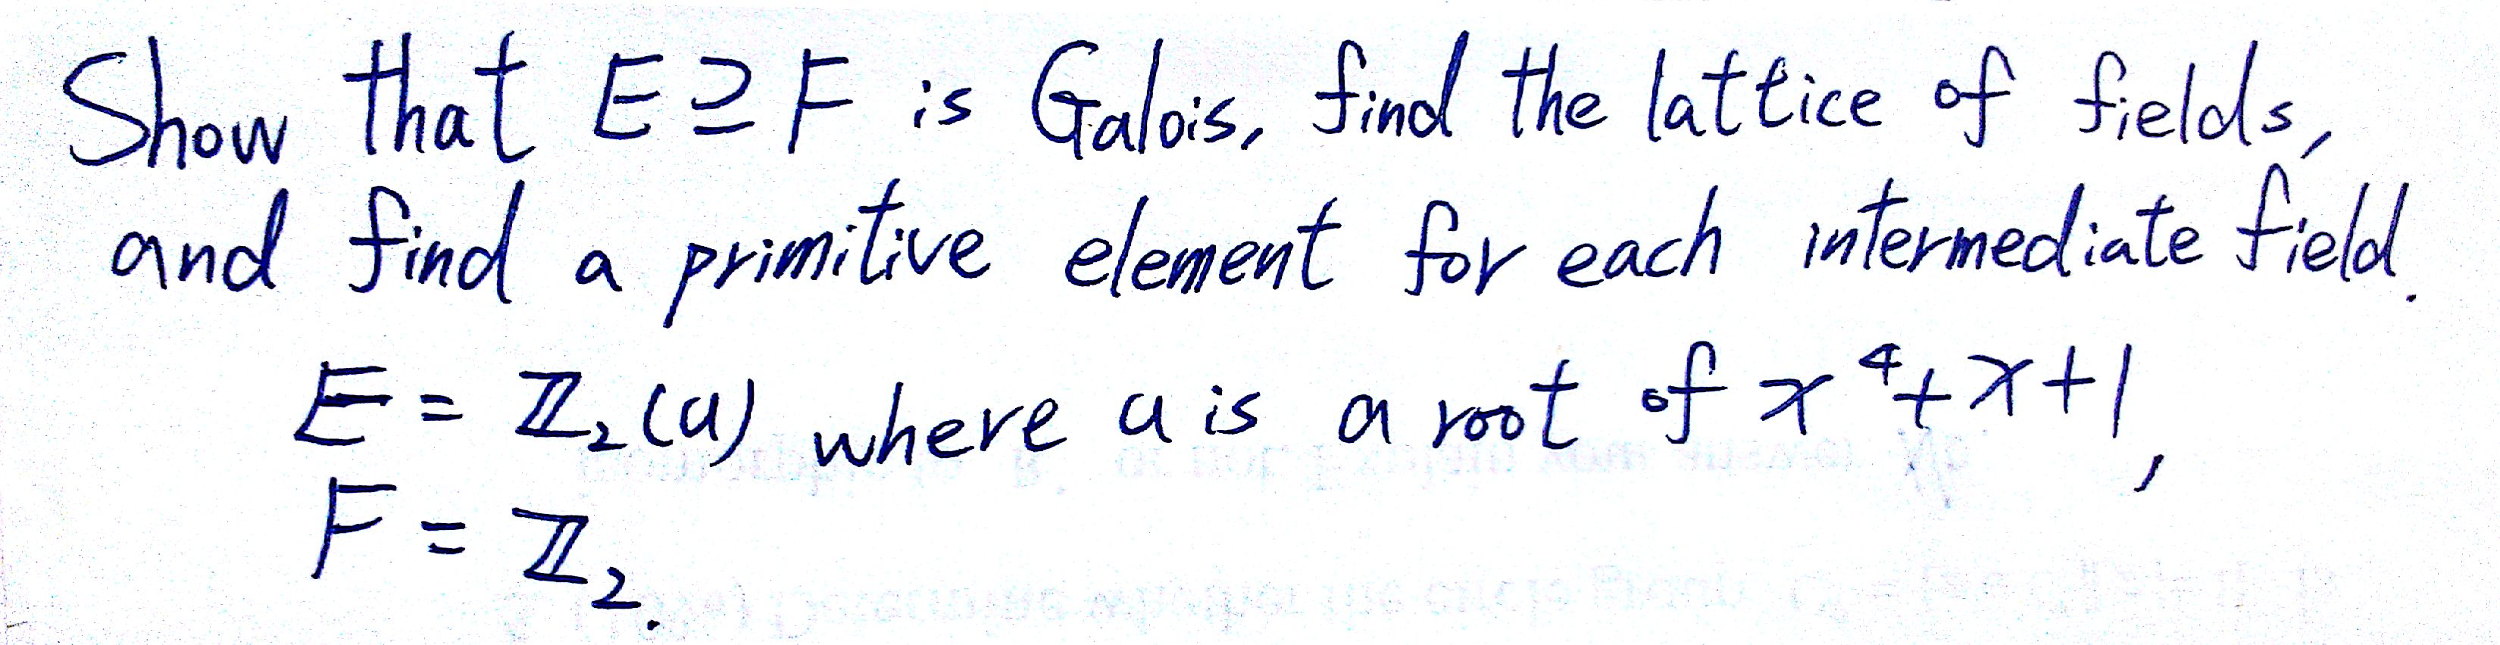 Show that E ⊇ F is Galois, find the lattice of fields,
and find a primitive element for each intermediate field.
E = ℤ₂(u) where u is a root of x⁴+x+1,
F = ℤ₂.